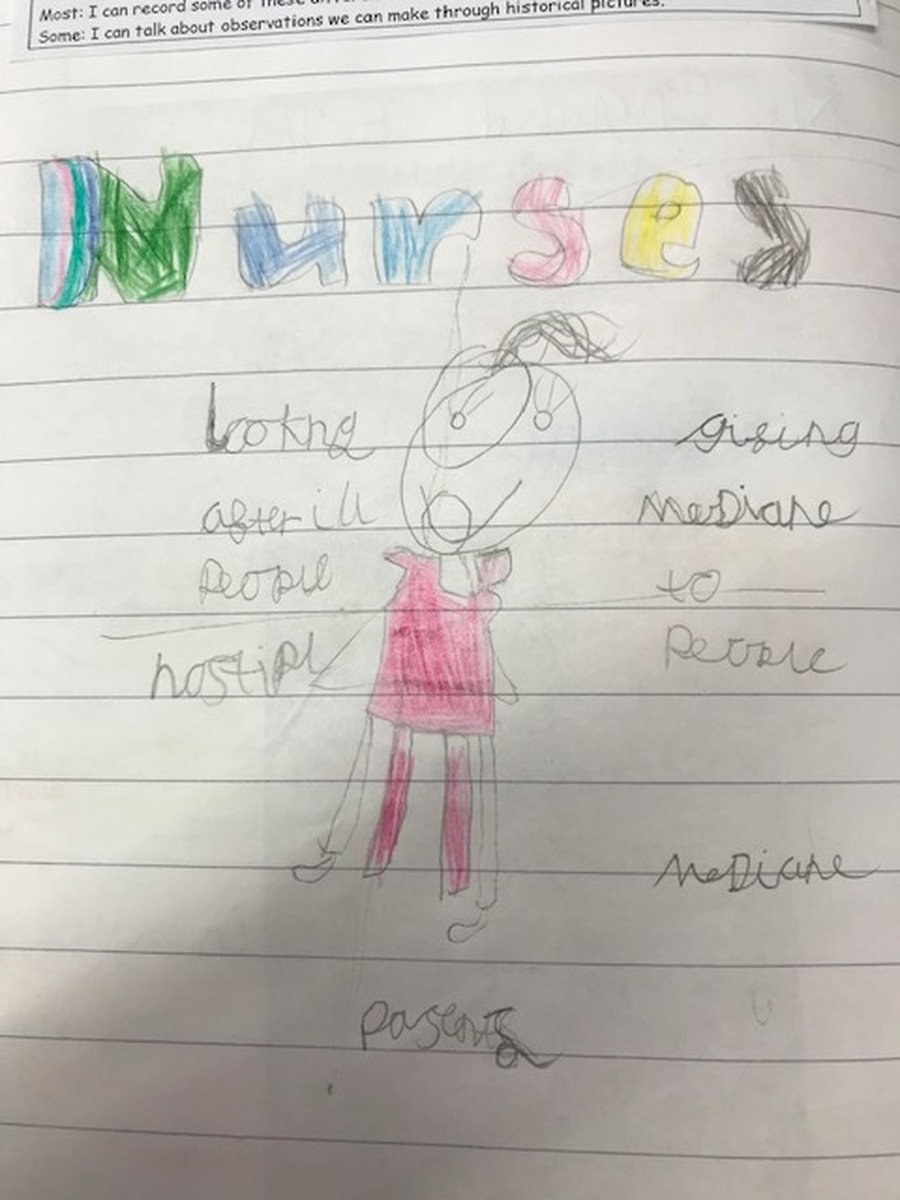 Most: I can record some of these
Some: I can talk about observations we can make through historical pictures.
Nurses
Lookng
after ill
people
hostipl
giving
mediane
to
people
mediane
pasents